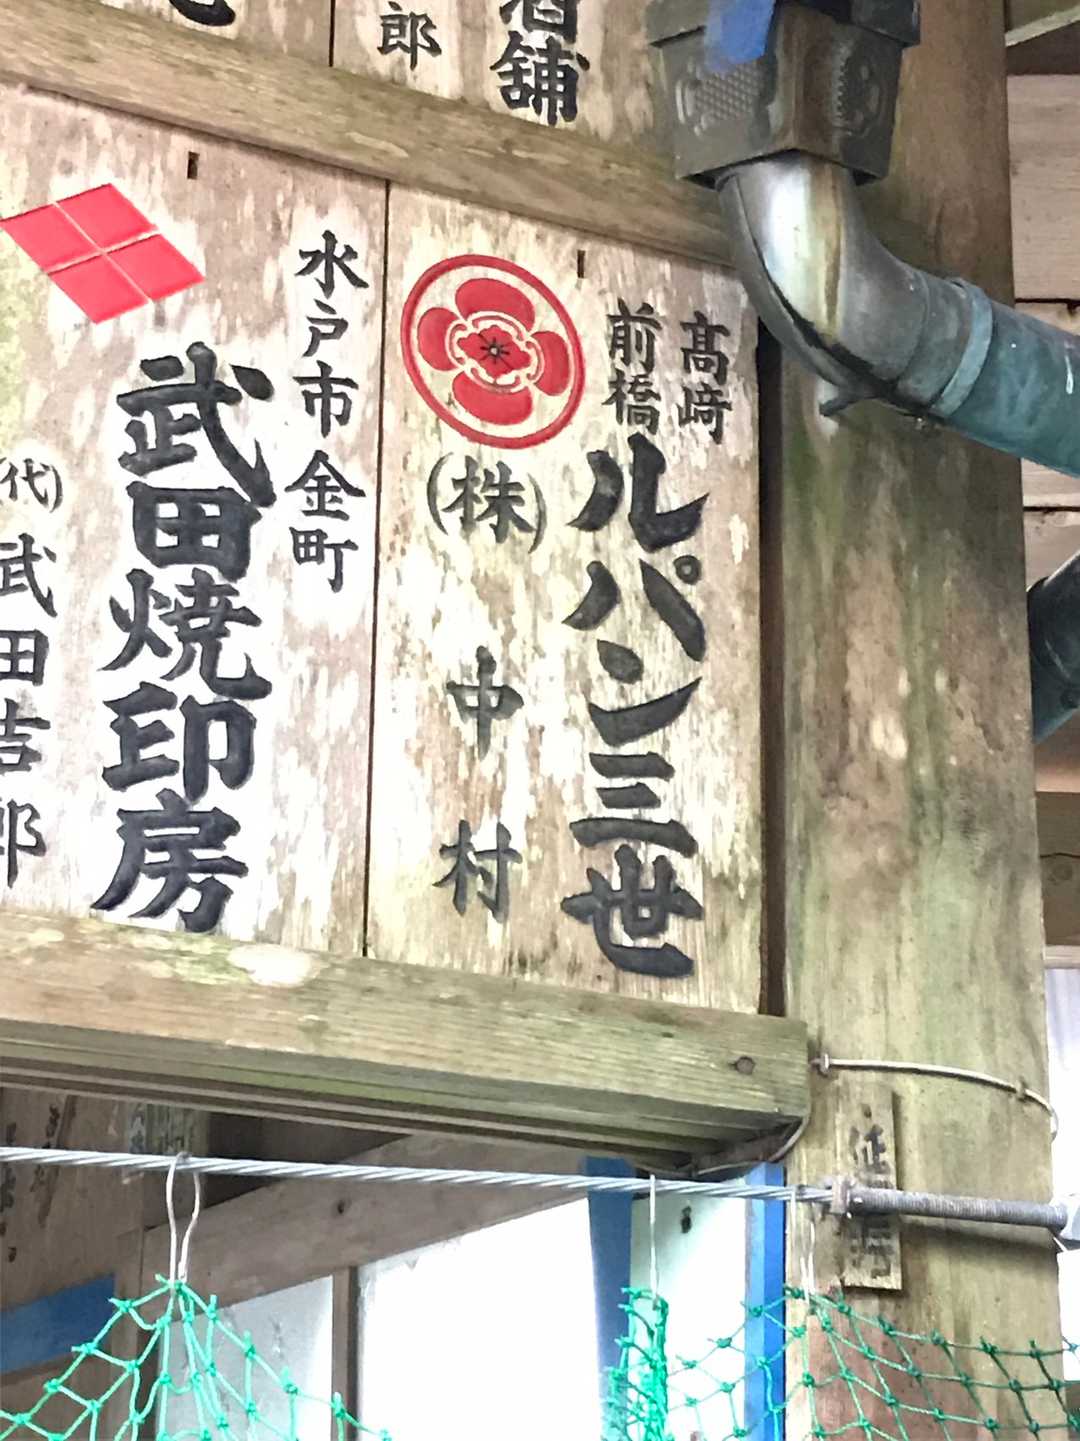 郎
酒舗
高﨑
前橋
ルパン三世
(株)中村
水戸市金町
武田焼印房
(代)武田吉郎